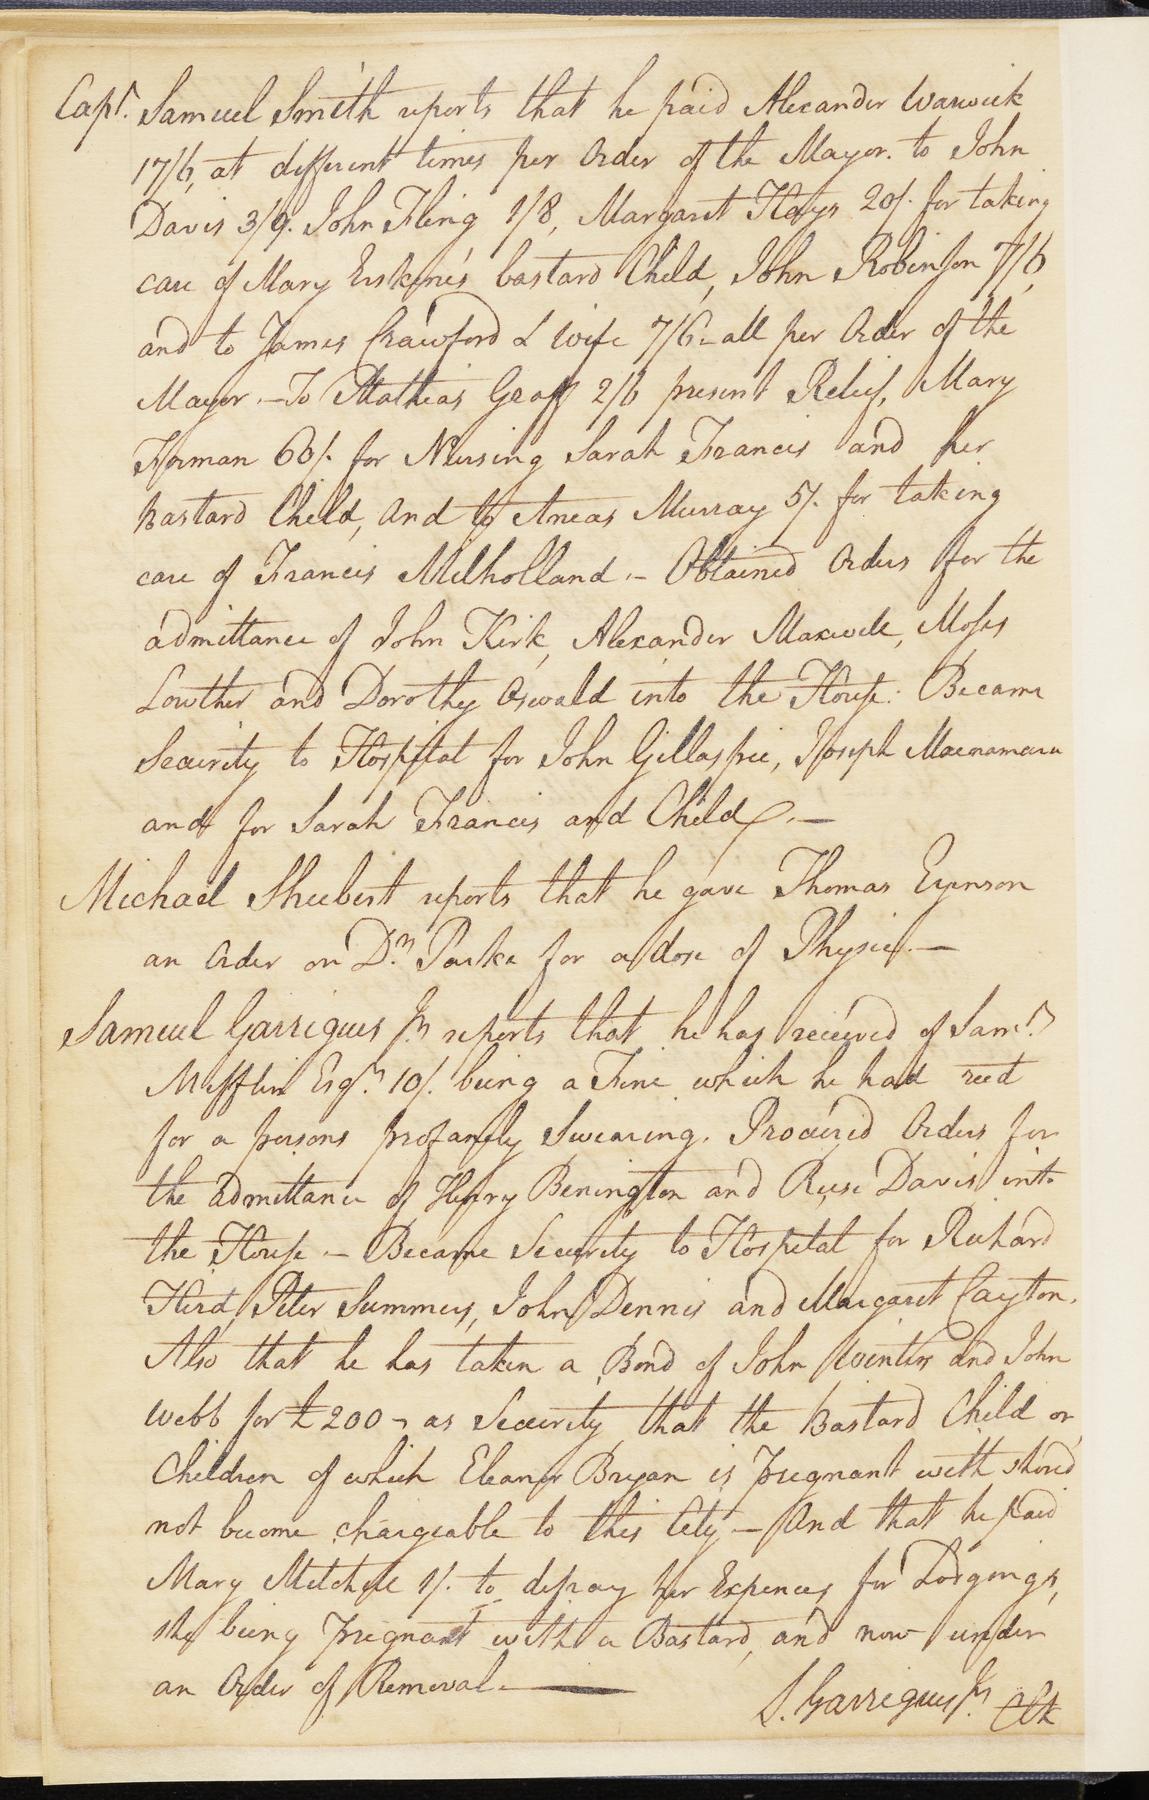 Capt. Samuel Smith reports that he paid Alexander Warwick
17/6, at different times per Order of the Mayor. to John
Davis 3/9. John Fling 1/8, Margaret Hays 20/. for taking
care of Mary Erskine's bastard Child, John Robinson 7/6,
and to James Crawford & Wife 7/6 - all per Order of the
Mayor. - To Mathias Graff 2/6 present Relief, Mary
Forman 60/. for Nursing Sarah Francis and her
Bastard Child, and to Aneas Murray 5/. for taking
care of Francis Milholland. - Obtained Orders for the
admittance of John Kirk, Alexander Maxwell, Moses
Lowther and Dorothy Oswald into the House. Became
Security to Hospital for John Gillaspie, Joseph Macnamara
and for Sarah Francis and Child. -
Michael Shubert reports that he gave Thomas Eyenson
an Order on Dr. Parke for a dose of Physic. -
Samuel Garrigues Jr. reports that he has received of Saml.
Mifflin Esqr. 10/. being a Fine which he had recd
for a persons profanely Swearing. Procured Orders for
the admittance of Henry Benington and Reese Davis into
the House - Became Security to Hospital for Richard
Hird, Peter Summers, John Dennis and Margaret Cayton.
Also that he has taken a Bond of John Winters and John
Webb for £200 - as Security that the Bastard Child or
Children of which Eleanor Bryan is Pregnant with should
not become chargeable to this City - And that he paid
Mary Mitchell 1/. to defray her Expences for Lodgings,
she being Pregnant with a Bastard, and now under
an Order of Removal. -
S. Garrigues Jr. Clk